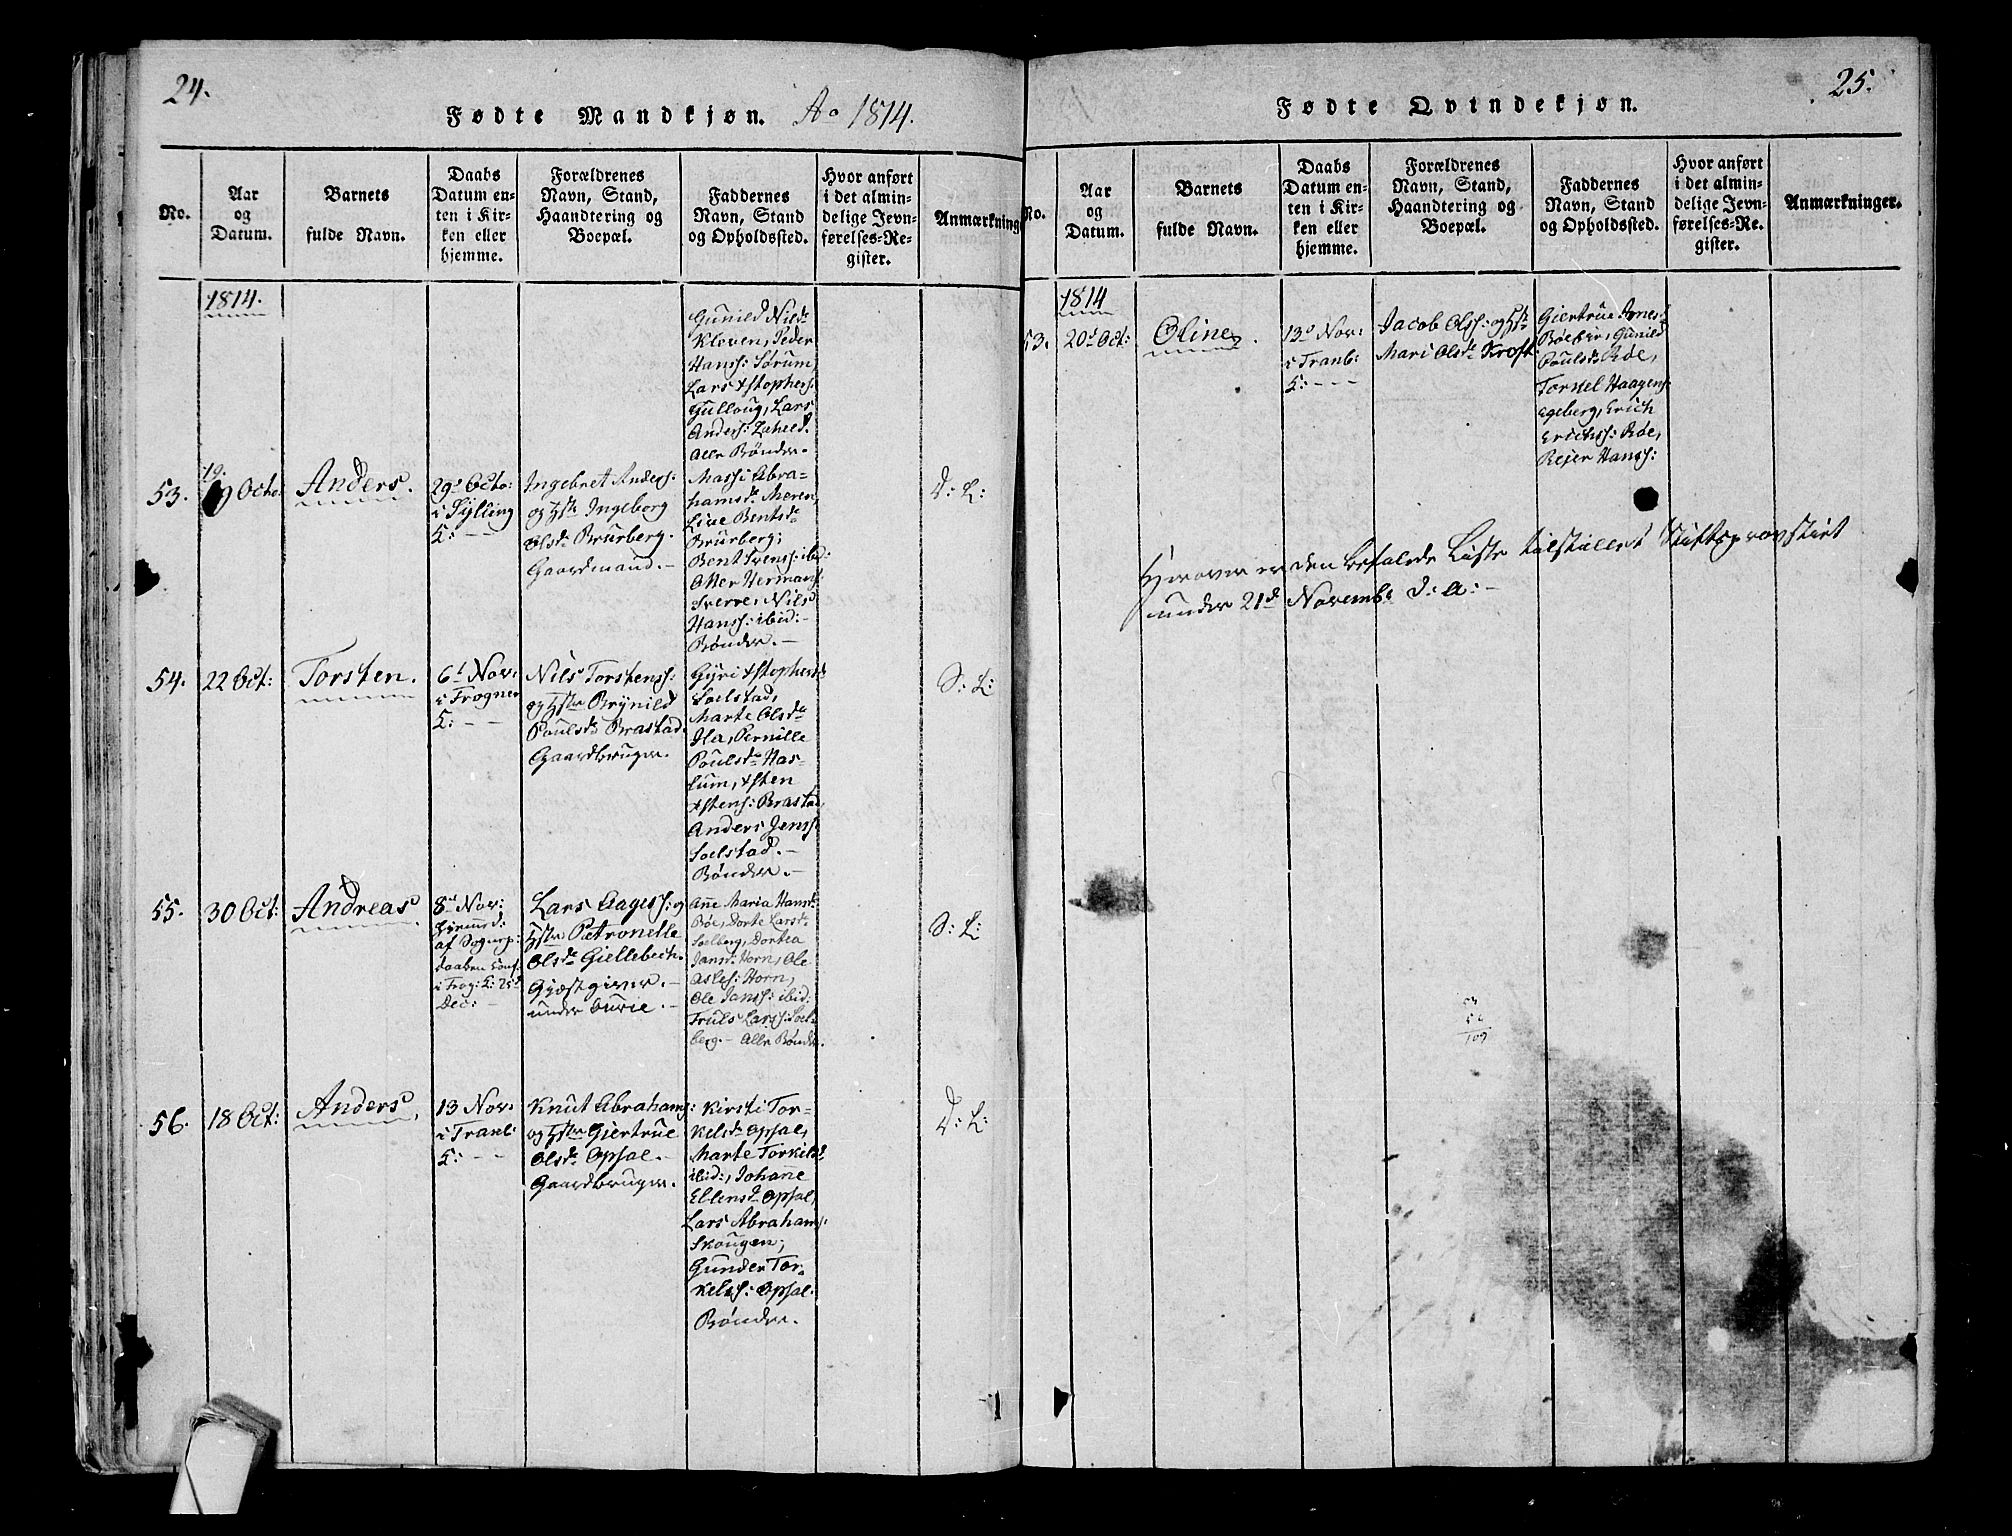 24.
Fødte Mandkjøn. Ao 1814.
No.
Aar
og
Datum.
Barnets
fulde Navn.
Daabs
Datum en-
ten i Kir-
ken eller
hjemme.
Forældrenes
Navn, Stand,
Haandtering og
Boepæl.
Faddernes
Navn, Stand
og Opholdssted.
Hvor anført
i det almin-
delige Jevn-
førelses-Re-
gister.
Anmærkninge
1814.
Gunild Nilsd:
Kleven, Peder
Hanss: Sørum,
Lars Xstophers:
Gulloug, Lars
Anders: Laheld.
Alle Bønder.
53.
19 Octo:
Anders.
29de Octo:
i Sylling
K: - -
Ingebret Anders:
og Hstr Ingeborg
Olsd: Brurberg.
Gaardmand. -
Massi Abra-
hamsd: Meren,
Live Bentsd:
Brurberg;
Bent Svens: ibid:
Atter Hermans:
Sverre, Nils
Hanss: ibid: -
Bønder. -
D: L:
54.
22 Oct:
Torsten.
6t Nov:
i Frogner
K: - -
Nils Torstens:
og Hstr Brynild
Poulsd: Brastad.
Gaardbruger.
Gyri Xstophersd:
Soelstad,
Marte Olsd:
Ila, Pernille
Poulsd: Has-
lum, Xsten
Xstens: Brastad,
Anders Jenss:
Soelstad. -
Bønder. -
S: L:
55.
30 Oct:
Andreas
8d Nov:
hjemmed:
af Sognep:
daaben conf:
i Frog: K: 25d
Dec: -
Lars Aagess: og
Hstr Petronelle
Olsd: Gjellebech.
Gjæstgiver. -
under Ourie. -
Anne Maria Hansd:
Bøe, Dorte Larsd:
Soelberg, Dortea
Jansd: Horn, Ole
Asles: Horn,
Ole Janss: ibid:
Truls Larss: Soel-
berg. - Alle Bønder.
S: L:
56.
18 Oct:
Anders
13 Nov:
i Tranb:
K: - -
Knut Abrahams:
og Hstr Giertrue
Olsd: Opsal. -
Gaardbruger.
Kirsti Tor-
kelsd: Opsal,
Marte Torkelsd:
ibid:, Johanne
Ellensd: Opsal,
Lars Abrahams:
Skougen;
Gunder Tor-
kelss: Opsal.
Bønder.
D: L:
25.
Fødte Qvindekjøn.
No.
Aar
og
Datum.
Barnets
fulde Navn.
Daabs
Datum en-
ten i Kir-
ken eller
hjemme.
Forældrenes
Navn, Stand,
Haandtering og
Boepæl.
Faddernes
Navn, Stand
og Opholdssted.
Hvor anført
i det almin-
delige Jevn-
førelses-Re-
gister.
Anmærkninger.
1814
53.
20d Oct:
Oline.
13de Nov:
i Tranb:
K: - - -
Jacob Olss: og Hstr
Mari Olsd: Kroft.
Giertrue Arnesd:
Bøeker, Gunild
Poulsd: Røe,
Torstel Haagens:
Egeberg, Erich
Erichss: Røe,
Rejer Hanss:
Herover er den befalede Liste tilstillet Stiftsprovstiet
under 21d Novembr d: a: -
53
56
109